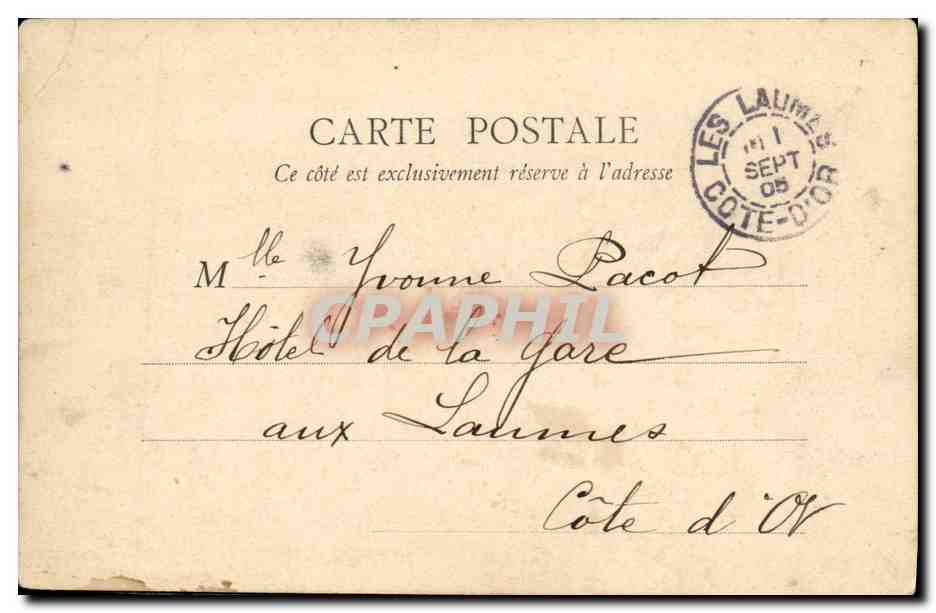 CARTE POSTALE
Ce côté est exclusivement réserve à l'adresse
LES LAUMES
1
SEPT
05
COTE-D'OR
Mlle Yvonne Pacot
CPARPHIL
Hôtel de la Gare
aux Laumes
Côte d'Or